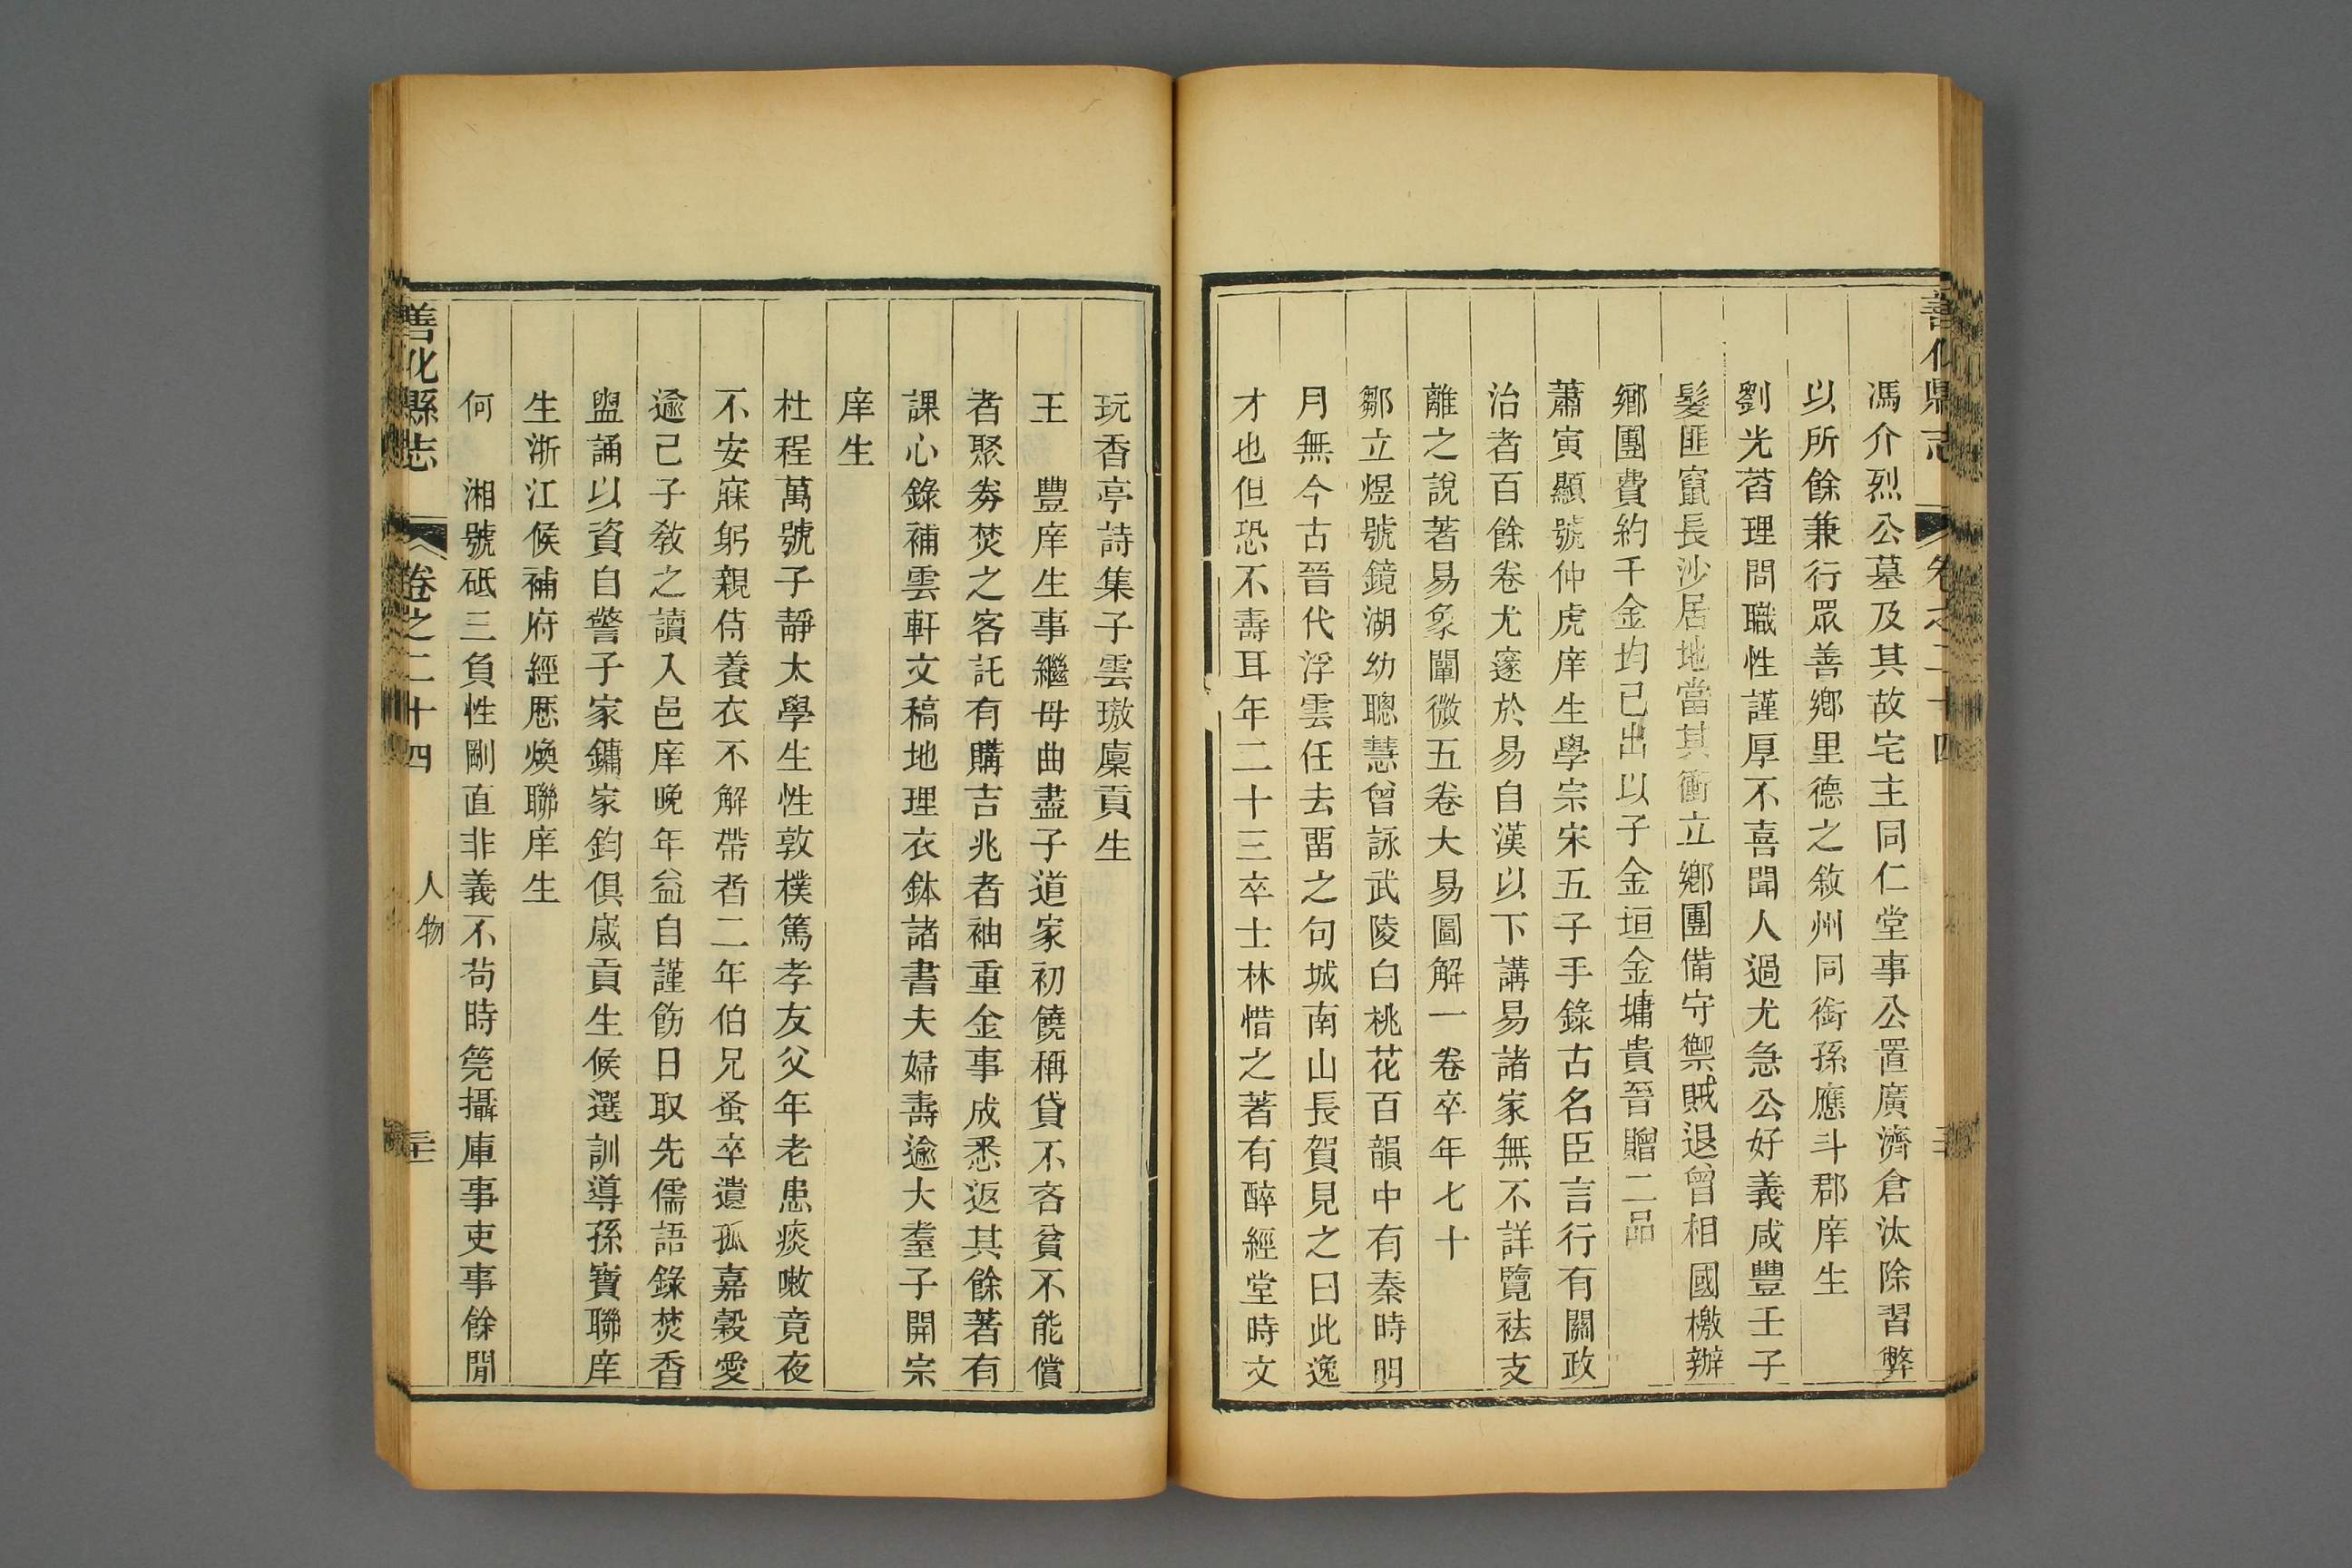 善化縣志
卷之二十四
馮介烈公墓及其故宅主同仁堂事公置廣濟倉汰除習弊
以所餘兼行眾善鄉里德之敘州同銜孫應斗郡庠生
劉光萻理問職性謹厚不喜聞人過尤急公好義咸豐壬子
髮匪竄長沙居地當其衝立鄉團備守禦賊退曾相國檄辦
鄉團費約千金均己出以子金垣金墉貴晉贈二品
蕭寅顯號仲虎庠生學宗宋五子手錄古名臣言行有關政
治者百餘卷尤邃於易自漢以下講易諸家無不詳覽祛支
離之說著易象闡微五卷大易圖解一卷卒年七十
鄒立煜號鏡湖幼聰慧曾詠武陵白桃花百韻中有秦時明
月無今古晉代浮雲任去畱之句城南山長賀見之曰此逸
才也但恐不壽耳年二十三卒士林惜之著有醉經堂時文
玩香亭詩集子雲璈廩貢生
王　豐庠生事繼母曲盡子道家初饒稱貸不吝貧不能償
者聚劵焚之客託有購吉兆者袖重金事成悉返其餘著有
課心錄補雲軒文稿地理衣鉢諸書夫婦壽逾大耋子開宗
庠生
杜程萬號子靜太學生性敦樸篤孝友父年老患痰嗽竟夜
不安寐躬親侍養衣不解帶者二年伯兄蚤卒遺孤嘉穀愛
逾己子敎之讀入邑庠晚年益自謹飭日取先儒語錄焚香
盥誦以資自警子家鏞家鈞俱歲貢生候選訓導孫寶聯庠
生浙江候補府經歷煥聯庠生
何　湘號砥三負性剛直非義不苟時筦攝庫事吏事餘閒
善化縣志
卷之二十四
人物